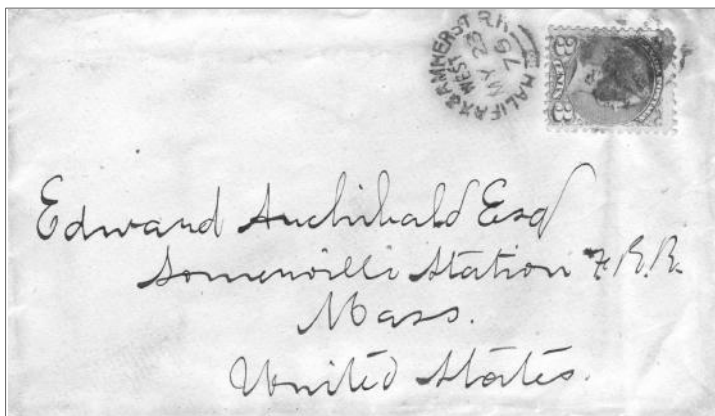 HALIFAX & AMHERST R.W.
WEST
MY 23
75
3 CENTS 3
Edward Archibald Esq
Somerville Station F.R.R.
Mass.
United States.